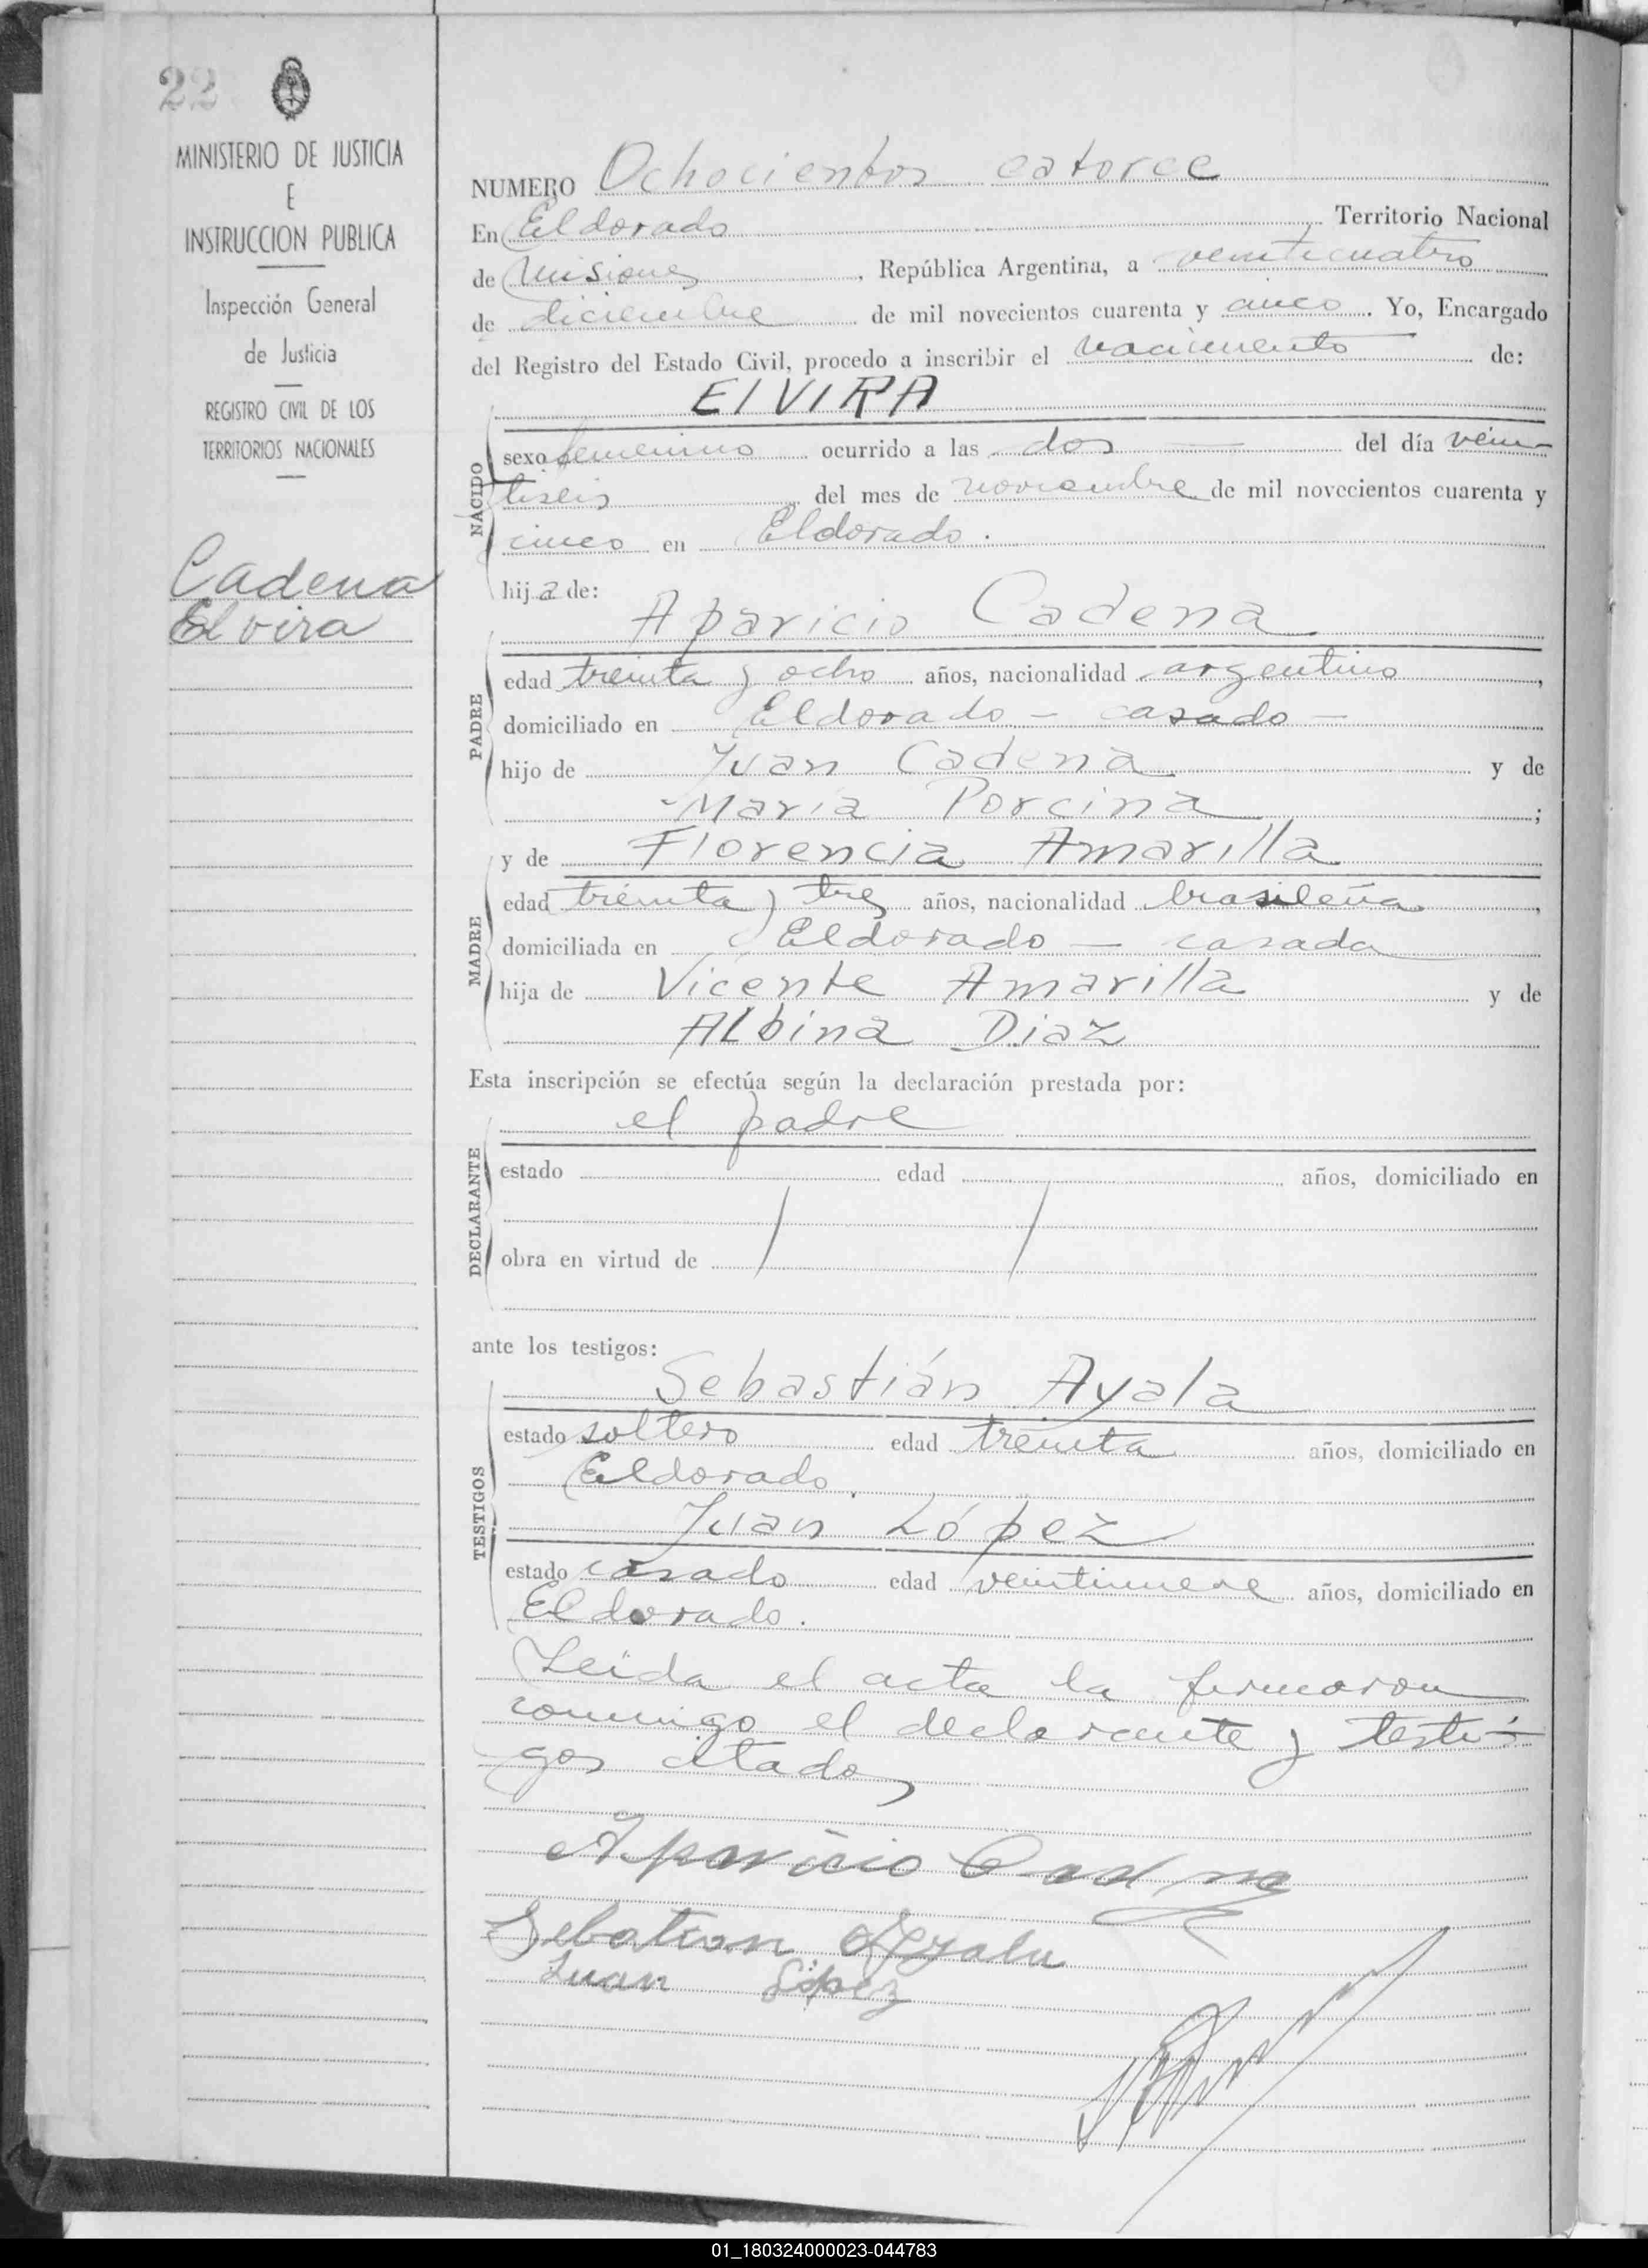 22
MINISTERIO DE JUSTICIA
E
INSTRUCCION PUBLICA
Inspección General
de Justicia
REGISTRO CIVIL DE LOS
TERRITORIOS NACIONALES
Cadena
Elvira
NUMERO Ochocientos catorce
En Eldorado Territorio Nacional
de Misiones, República Argentina, a veinticuatro
de diciembre de mil novecientos cuarenta y cinco. Yo, Encargado
del Registro del Estado Civil, procedo a inscribir el nacimiento de:
ElVIRA
NACIDO
sexo femenino ocurrido a las dos del día vein-
tiseis del mes de noviembre de mil novecientos cuarenta y
cinco en Eldorado.
hija de:
Aparicio Cadena
PADRE
edad treinta y ocho años, nacionalidad argentino,
domiciliado en Eldorado - casado -
hijo de Juan Cadena y de
María Porcina;
y de Florencia Amarilla
MADRE
edad treinta y tres años, nacionalidad brasileña,
domiciliada en Eldorado - casada
hija de Vicente Amarilla y de
Albina Diaz
Esta inscripción se efectúa según la declaración prestada por:
el padre
DECLARANTE
estado edad años, domiciliado en
obra en virtud de
ante los testigos:
Sebastián Ayala
TESTIGOS
estado soltero edad treinta años, domiciliado en
Eldorado.
Juan López
estado casado edad veintinueve años, domiciliado en
Eldorado.
Leída el acta la firmaron
conmigo el declarante y testi-
gos citados
Aparicio Cadena
Sebatian Ayala
Juan López
01_180324000023-044783